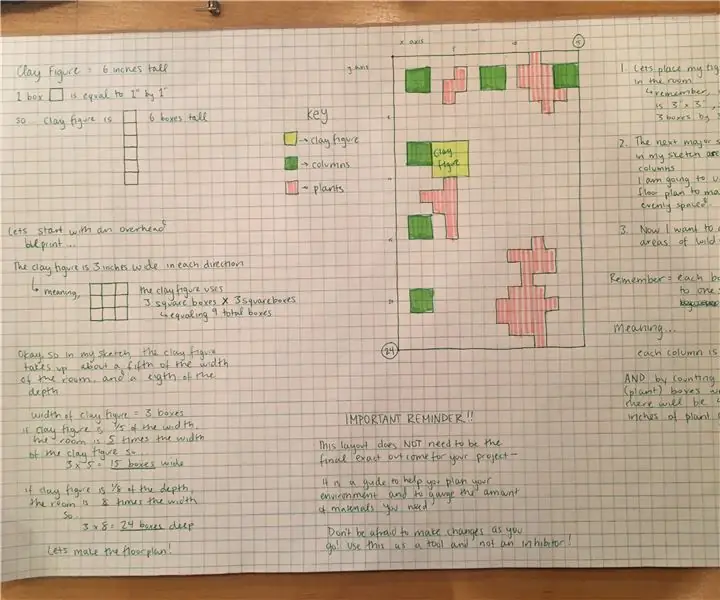 Clay Figure = 6 inches tall
1 box is equal to 1" by 1"
so clay figure is 6 boxes tall
Lets start with an overhead
bleprint...
The clay figure is 3 inches wide in each direction
meaning, the clay figure uses
3 square boxes X 3 square boxes
equaling 9 total boxes
Okay, so in my sketch, the clay figure
takes up about a fifth of the width
of the room, and a eigth of the
depth
width of clay figure = 3 boxes
if clay figure is 1/5 of the width,
the room is 5 times the width
of the clay figure so...
3 x 5 = 15 boxes wide
if clay figure is 1/8 of the depth,
the room is 8 times the width
so...
3 x 8 = 24 boxes deep
Lets make the floorplan!
key
→ clay figure
→ columns
→ plants
x axis
y axis
5
10
15
5
10
15
20
24
Clay
Figure
IMPORTANT REMINDER!!
This layout does NOT need to be the
final exact outcome for your project—
It is a guide to help you plan your
environment and to gauge the amount
of materials you need
Don't be afraid to make changes as you
go! Use this as a tool and not an inhibitor!
1. Lets place my fig
in the room
remember,
is 3" x 3",
3 boxes by 3
2. The next major s
in my sketch are
columns
I am going to u
floor plan to ma
evenly spaced.
3. Now I want to
areas of wild
Remember = each bo
to one
Meaning...
each column is
AND by counting
(plant) boxes
there will be
inches of plant